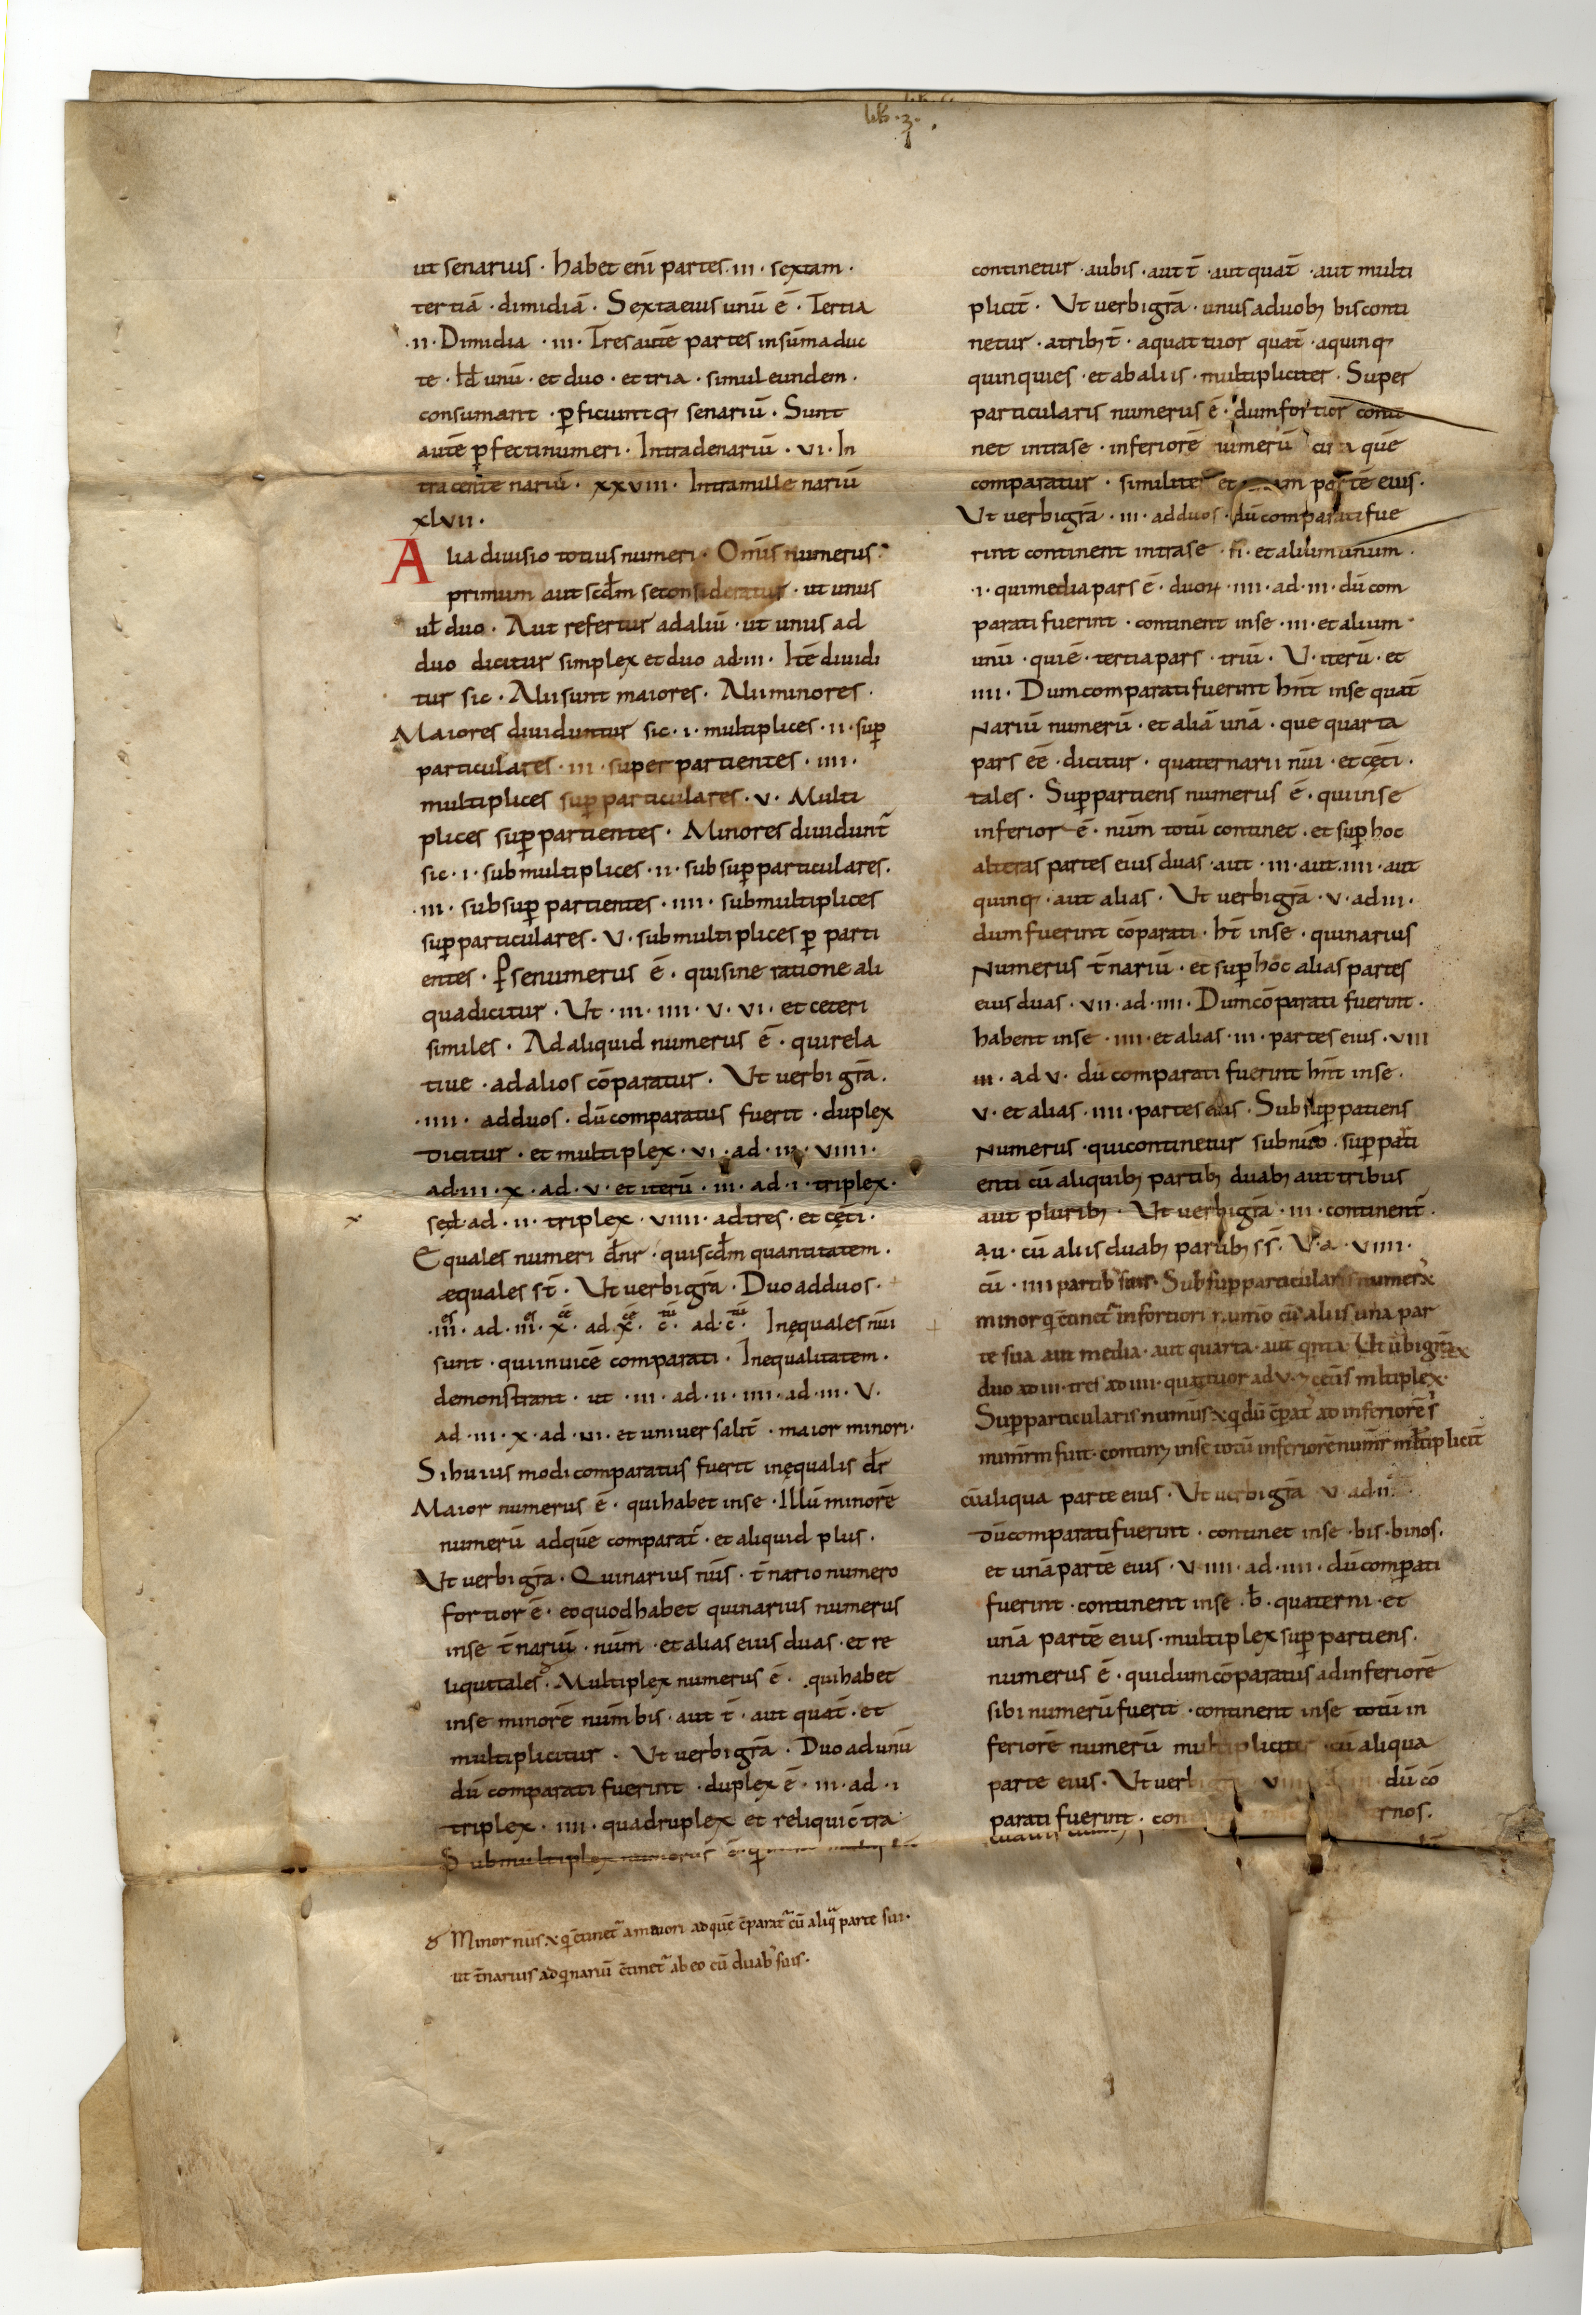 lib · 3 ·
ut senarius · habet eni̅ partes · iii · sextam ·
tertia̅ · dimidia̅ · Sexta eius unu̅ e̅ · Tertia
· ii · Dimidia · iii · Tres aute̅ partes in su̅ma duc
te · unu̅ · et duo · et tria · simul eundem ·
consumant · ꝑficiuntq; senariu̅ · Sunt
aute̅ ꝑfecti numeri · Intra denariu̅ · vi · In
tra centenariu̅ · xxviii · Intra millenariu̅
xlvii ·
Alia diuisio totius numeri · Om̅is numerus
primum aut scd̅m se consideratur · ut unus
ul̅ duo · Aut refertur ad aliu̅ · ut unus ad
duo dicitur simplex et duo ad · iii · Ite̅ diuidi
tur sic · Alii sunt maiores · Alii minores ·
Maiores diuiduntur sic · i · multiplices · ii · suꝑ
particulares · iii · super partientes · iiii ·
multiplices suꝑparticulares · v · Multi
plices suꝑpartientes · Minores diuidunt̅
sic · i · submultiplices · ii · subsuꝑparticulares ·
· iii · subsuꝑpartientes · iiii · submultiplices
suꝑparticulares · V · submultiplices ꝑ parti
entes · ꝑ se numerus e̅ · qui sine ratione ali
qua dicitur · Ut · iii · iiii · v · vi · et ceteri
similes · Ad aliquid numerus e̅ · qui rela
tiue · ad alios co̅paratur · Ut uerbi gr̅a ·
· iiii · ad duos · du̅ comparatus fuerit · duplex
dicitur · et multiplex · vi · ad · iii · viiii ·
ad · iii · x · ad · v · et iteru̅ · iii · ad · i · triplex ·
sed · ad · ii · triplex · viiii · ad tres · et cęti ·
Equales numeri dn̅r · qui scd̅m quantitatem ·
æquales st̅ · Ut uerbi gr̅a · Duo ad duos ·
· iii · ad · iii · x · ad · x · c · ad · c · Inęquales nu̅i
sunt · qui inuice̅ comparati · Inequalitatem ·
demonstrant · ut · iii · ad · ii · iiii · ad · iii · V ·
ad · iii · x · ad · ui · et uniuersalit̅ · maior minori ·
Si huius modi comparatus fuerit inęqualis dr̅
Maior numerus e̅ · qui habet in se · Illu̅ minore̅
numeru̅ ad que̅ comparat̅ · et aliquid plus ·
Ut uerbi gr̅a · Quinarius nu̅s · t̅nario numero
fortior e̅ · eo quod habet quinarius numerus
in se t̅nariu̅ · nu̅m · et alias eius duas · et re
liqui tales · Multiplex numerus e̅ · qui habet
in se minore̅ nu̅m bis · aut t̅ · aut quat̅ · et
multiplicitur · Ut uerbi gr̅a · Duo ad unu̅
du̅ comparati fuerint · duplex e̅ · iii · ad · i
triplex · iiii · quadruplex et reliqui c̅tra
Submultiplex numerus e̅ · q
Minor nu̅s · x · q c̅tinet̅ a maiori ad que̅ c̅parat̅ cu̅ aliqa parte sui ·
ut t̅narius ad qinariu̅ c̅tinet̅ ab eo cu̅ duab; suis ·
continetur · a ubis · aut t̅ · aut quat̅ · aut multi
plicit̅ · Ut uerbi gr̅a · unus a duob; bis conti
netur · a trib; t̅ · a quattuor quat̅ · a quinq;
quinquies · et ab aliis · multipliciter · Super
particularis numerus e̅ · dum fortior conti
net intra se · inferiore̅ numeru̅ que̅
comparatur · similiter et parte̅ eius ·
Ut uerbi gr̅a · iii · ad duos · du̅ comparati fue
rint continent intra se · ii · et alium unum ·
· i · qui media pars e̅ · duoꝝ · iiii · ad · iii · du̅ com
parati fuerint · continent in se · iii · et alium ·
unu̅ · qui e̅ · tertia pars · triu̅ · V · iteru̅ · et
iiii · Dum comparati fuerint hn̅t in se quat̅
Nariu̅ numeru̅ · et alia̅ una̅ · que quarta
pars ee̅ · dicitur · quaternarii nu̅i · et cęti ·
tales · Suꝑpartiens numerus e̅ · qui in se
inferior e̅ · nu̅m totu̅ continet · et suꝑ hoc
alteras partes eius duas · aut · iii · aut · iiii · aut
quinq; · aut alias · Ut uerbi gr̅a · v · ad iii ·
dum fuerint co̅parati · ht̅ in se · quinarius
Numerus t̅nariu̅ · et suꝑ hoc alias partes
eius duas · vii · ad · iiii · Dum co̅parati fuerint ·
habent in se · iiii · et alias · iii · partes eius · viii
iii · ad v · du̅ comparati fuerint hn̅t in se ·
v · et alias · iiii · partes eius · Subsuꝑpatiens
Numerus · qui continetur sub nu̅o · suꝑparti
enti cu̅ aliquib; partib; duab; aut tribus
aut plurib; · Ut uerbi gr̅a · iii · continent̅ ·
a · u · cu̅ aliis duab; partib; s s · V · a · viiii ·
cu̅ · iiii partib; suis · Subsuꝑparticularis numer x
minor q c̅tinet̅ in fortiori num̅o cu̅ aliis una par
te sua aut media · aut quarta · aut qnta · Ut u̅bi gr̅a
duo ad iii · tres ad iiii · quattuor ad v · et ceteris multiplex ·
Suꝑparticularis num̅s x q du̅ c̅parat̅ ad inferiore̅ s
fuit · continet in se totu̅ inferiore̅ mltiplicit̅
cu̅ aliqua parte eius · Ut uerbi gr̅a v · ad · ii ·
Du̅ comparati fuerint · continet in se · bis · binos ·
et una̅ parte̅ eius · v iiii · ad · iiii · du̅ comꝑati
fuerint · continent in se · b̅ · quaterni · et
una̅ parte̅ eius · multiplex suꝑpartiens ·
numerus e̅ · qui dum co̅paratus ad inferiore̅
sibi numeru̅ fuerit · continent in se totu̅ in
feriore̅ numeru̅ multiplicitur cu̅ aliqua
parte eius · Ut uerbi du̅ co̅
parati fuerint · con rnos ·